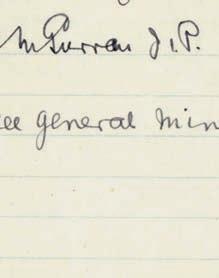 McGurran J.P.
general Min